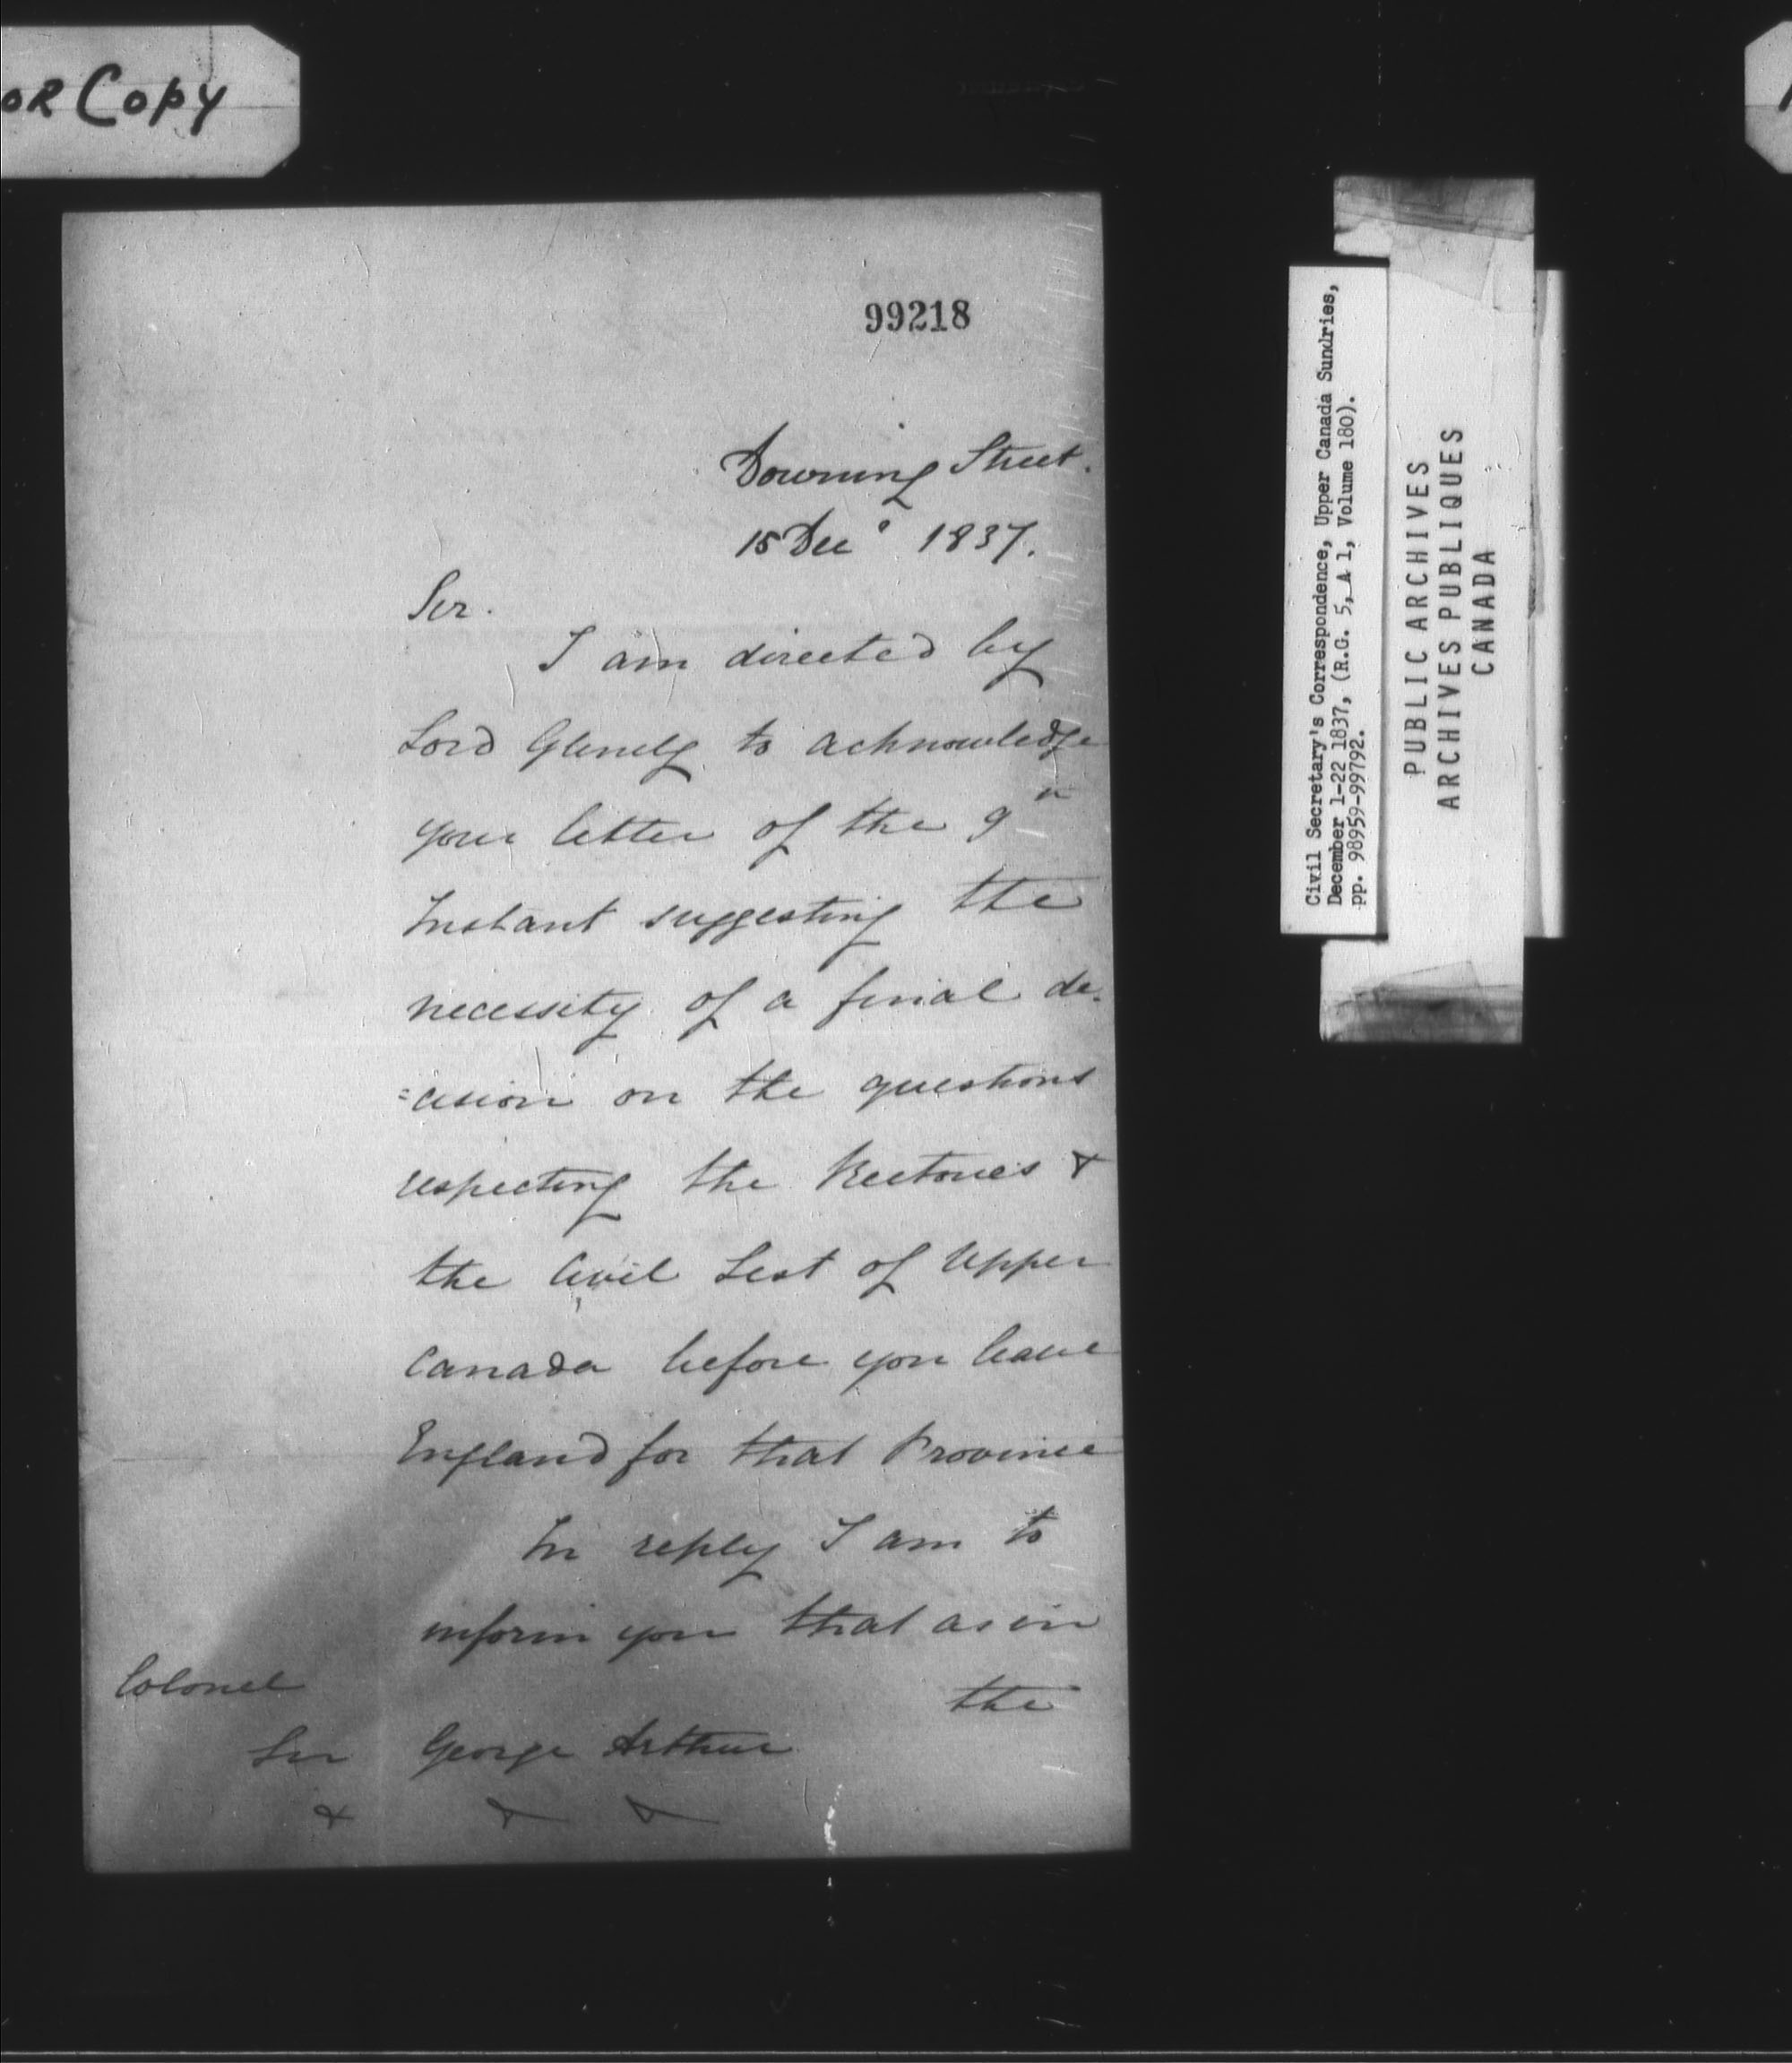 OR Copy
99218
Downing Street.
15 Decr 1837.
Sir.
I am directed by
Lord Glenelg to acknowledge
your letter of the 9th
Instant suggesting the
necessity of a final de-
=cision on the questions
respecting the Rectories &
the Civil List of Upper
Canada before you leave
England for that Province
In reply I am to
inform you that as in
the
Colonel
Sir George Arthur
& & &
Civil Secretary's Correspondence, Upper Canada Sundries,
December 1-22 1837, (R.G. 5, A 1, Volume 180).
pp. 98959-99792.
PUBLIC ARCHIVES
ARCHIVES PUBLIQUES
CANADA